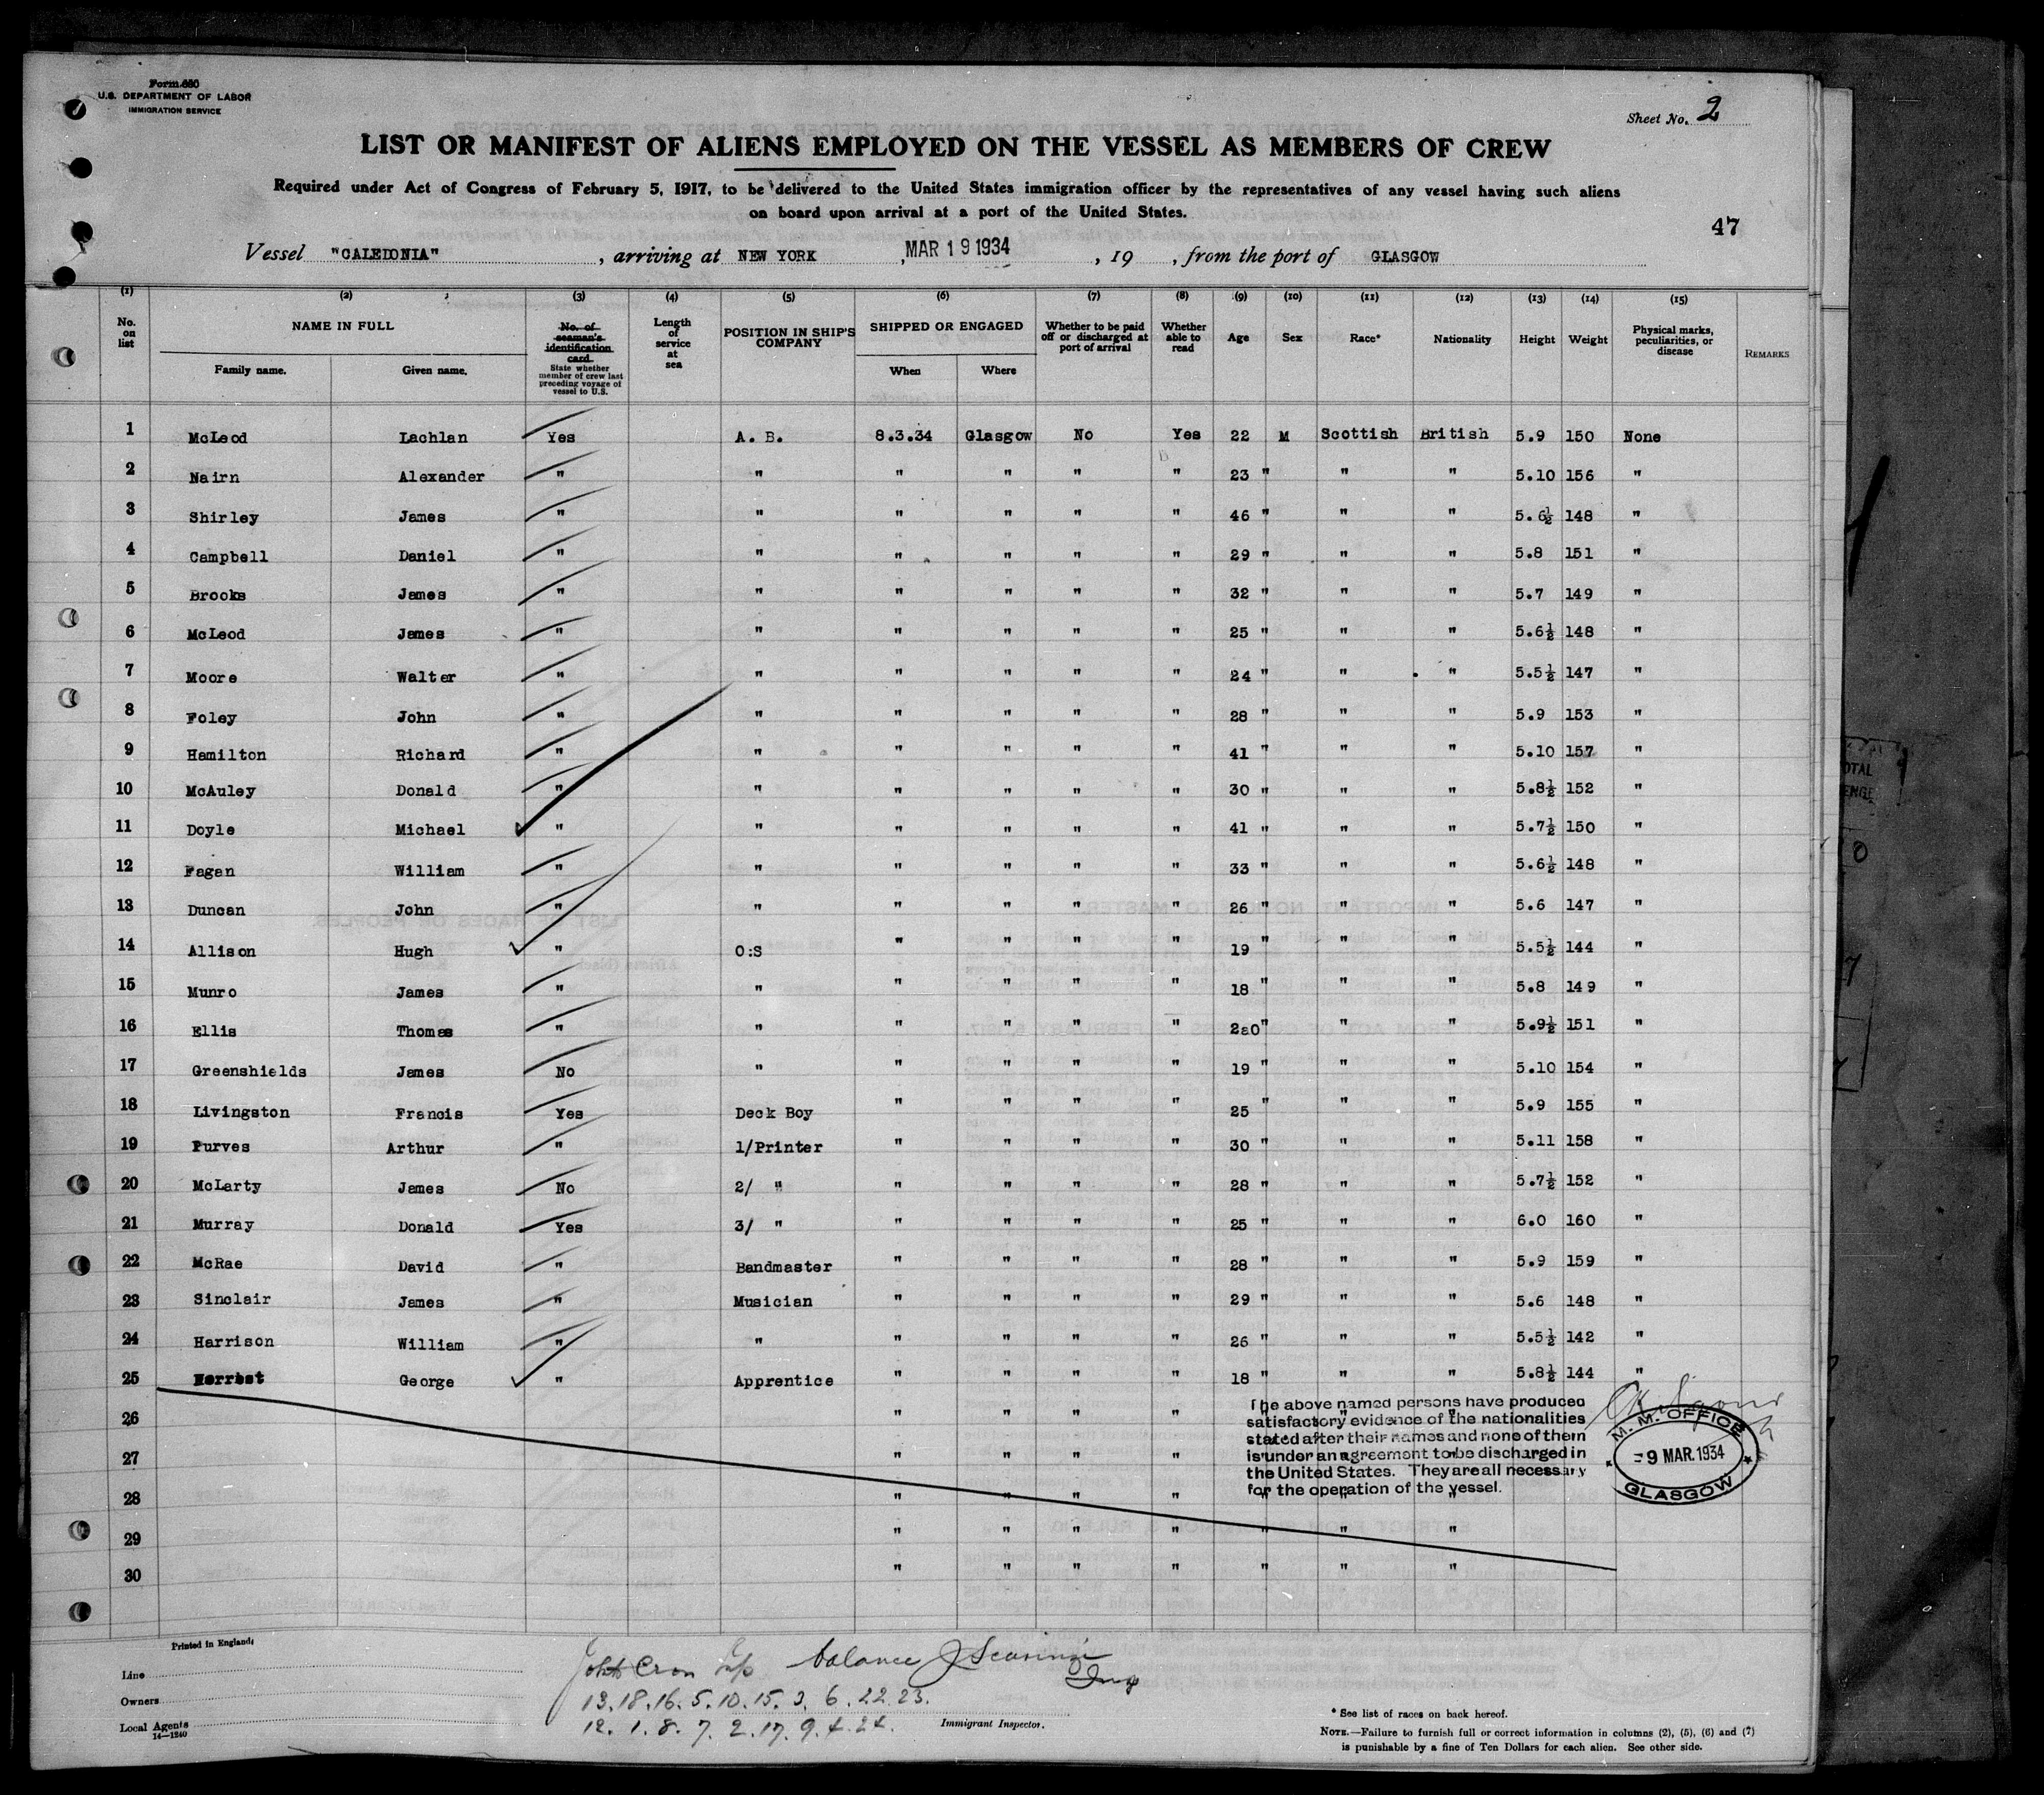 Form 680
U.S. DEPARTMENT OF LABOR
IMMIGRATION SERVICE
Sheet No. 2
LIST OR MANIFEST OF ALIENS EMPLOYED ON THE VESSEL AS MEMBERS OF CREW
Required under Act of Congress of February 5, 1917, to be delivered to the United States immigration officer by the representatives of any vessel having such aliens
on board upon arrival at a port of the United States.
47
Vessel "CALEDONIA", arriving at NEW YORK, MAR 19 1934, 19 , from the port of GLASGOW
(1) (2) (3) (4) (5) (6) (7) (8) (9) (10) (11) (12) (13) (14) (15)
No. on list
NAME IN FULL
Family name. Given name.
No. of seaman's identification card
State whether member of crew last preceding voyage of vessel to U.S.
Length of service at sea
POSITION IN SHIP'S COMPANY
SHIPPED OR ENGAGED
When Where
Whether to be paid off or discharged at port of arrival
Whether able to read
Age
Sex
Race*
Nationality
Height
Weight
Physical marks, peculiarities, or disease
REMARKS
1 McLeod Lachlan Yes A. B. 8.3.34 Glasgow No Yes 22 M Scottish British 5.9 150 None
2 Nairn Alexander " " " " " " 23 " " " 5.10 156 "
3 Shirley James " " " " " " 46 " " " 5.6½ 148 "
4 Campbell Daniel " " " " " " 29 " " " 5.8 151 "
5 Brooks James " " " " " " 32 " " " 5.7 149 "
6 McLeod James " " " " " " 25 " " " 5.6½ 148 "
7 Moore Walter " " " " " " 24 " " " 5.5½ 147 "
8 Foley John " " " " " " 28 " " " 5.9 153 "
9 Hamilton Richard " " " " " " 41 " " " 5.10 157 "
10 McAuley Donald " " " " " " 30 " " " 5.8½ 152 "
11 Doyle Michael " " " " " " 41 " " " 5.7½ 150 "
12 Fagan William " " " " " " 33 " " " 5.6½ 148 "
13 Duncan John " " " " " " 26 " " " 5.6 147 "
14 Allison Hugh " O:S " " " " 19 " " " 5.5½ 144 "
15 Munro James " " " " " " 18 " " " 5.8 149 "
16 Ellis Thomas " " " " " " 2a0 " " " 5.9½ 151 "
17 Greenshields James No " " " " " 19 " " " 5.10 154 "
18 Livingston Francis Yes Deck Boy " " " " 25 " " " 5.9 155 "
19 Purves Arthur " 1/Printer " " " " 30 " " " 5.11 158 "
20 McLarty James No 2/ " " " " " 28 " " " 5.7½ 152 "
21 Murray Donald Yes 3/ " " " " " 25 " " " 6.0 160 "
22 McRae David " Bandmaster " " " " 28 " " " 5.9 159 "
23 Sinclair James " Musician " " " " 29 " " " 5.6 148 "
24 Harrison William " " " " " " 26 " " " 5.5½ 142 "
25 George " Apprentice " " " " 18 " " " 5.8½ 144 "
26 " " " " " "
27 " " " " " "
28 " " " " " " "
29 " " " " " " "
30 " " " " " " "
The above named persons have produced
satisfactory evidence of the nationalities
stated after their names and none of them
is under an agreement to be discharged in
the United States. They are all necessary
for the operation of the vessel.
M. M. OFFICE
9 MAR. 1934
GLASGOW
Printed in England
Line
Owners
Local Agents
14—1240
balance
13.18.16.5.10.15.3.6.22.23.
12.1.8.7.2.17.9.4.24.
Immigrant Inspector.
* See list of races on back hereof.
NOTE.—Failure to furnish full or correct information in columns (2), (5), (6) and (7)
is punishable by a fine of Ten Dollars for each alien. See other side.